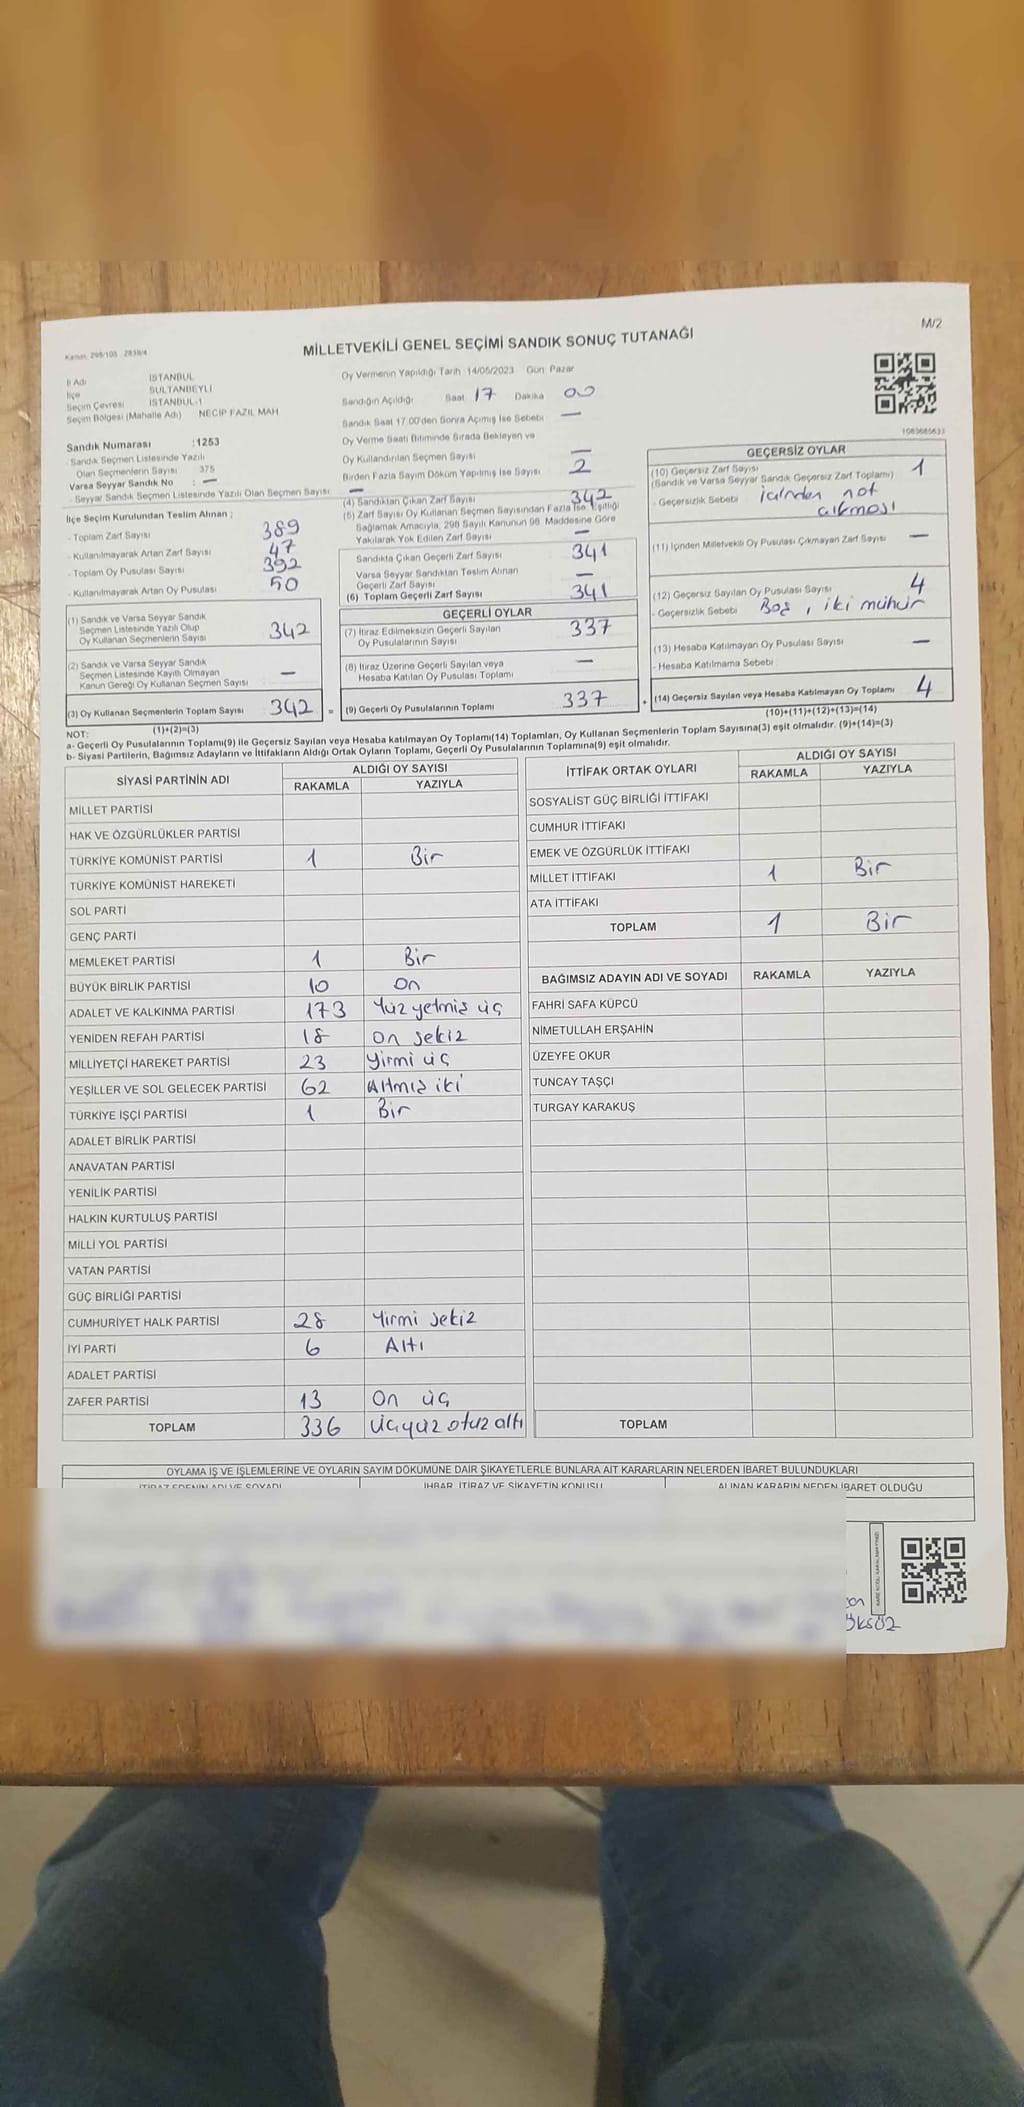 M/2
MİLLETVEKİLİ GENEL SEÇİMİ SANDIK SONUÇ TUTANAĞI
İl Adı İSTANBUL
İlçe SULTANBEYLİ
Seçim Çevresi İSTANBUL-1
Seçim Bölgesi (Mahalle Adı) NECİP FAZIL MAH
Sandık Numarası : 1253
- Sandık Seçmen Listesinde Yazılı
Olan Seçmenlerin Sayısı 375
Varsa Seyyar Sandık No : —
- Seyyar Sandık Seçmen Listesinde Yazılı Olan Seçmen Sayısı : —
İlçe Seçim Kurulundan Teslim Alınan ;
- Toplam Zarf Sayısı 389
- Kullanılmayarak Artan Zarf Sayısı 47
- Toplam Oy Pusulası Sayısı 392
- Kullanılmayarak Artan Oy Pusulası 50
(1) Sandık ve Varsa Seyyar Sandık
Seçmen Listesinde Yazılı Olup
Oy Kullanan Seçmenlerin Sayısı 342
(2) Sandık ve Varsa Seyyar Sandık
Seçmen Listesinde Kayıtlı Olmayan
Kanun Gereği Oy Kullanan Seçmen Sayısı —
(3) Oy Kullanan Seçmenlerin Toplam Sayısı 342 =
(1)+(2)=(3)
Oy Vermenin Yapıldığı Tarih :14/05/2023 Gün: Pazar
Sandığın Açıldığı Saat 17 Dakika 00
Sandık Saat 17.00'den Sonra Açımış İse Sebebi : —
Oy Verme Saati Bitiminde Sırada Bekleyen ve
Oy Kullandırılan Seçmen Sayısı —
Birden Fazla Sayım Döküm Yapılmış İse Sayısı 2
(4) Sandıktan Çıkan Zarf Sayısı 342
(5) Zarf Sayısı Oy Kullanan Seçmen Sayısından Fazla İse, Eşitliği
Sağlamak Amacıyla, 298 Sayılı Kanunun 98. Maddesine Göre
Yakılarak Yok Edilen Zarf Sayısı —
Sandıkta Çıkan Geçerli Zarf Sayısı 341
Varsa Seyyar Sandıktan Teslim Alınan
Geçerli Zarf Sayısı —
(6) Toplam Geçerli Zarf Sayısı 341
GEÇERLİ OYLAR
(7) İtiraz Edilmeksizin Geçerli Sayılan
Oy Pusulalarının Sayısı 337
(8) İtiraz Üzerine Geçerli Sayılan veya
Hesaba Katılan Oy Pusulası Toplamı —
(9) Geçerli Oy Pusulalarının Toplamı 337 +
GEÇERSİZ OYLAR
(10) Geçersiz Zarf Sayısı 1
(Sandık ve Varsa Seyyar Sandık Geçersiz Zarf Toplamı)
- Geçersizlik Sebebi : içinden not
çıkması
(11) İçinden Milletvekili Oy Pusulası Çıkmayan Zarf Sayısı —
(12) Geçersiz Sayılan Oy Pusulası Sayısı 4
- Geçersizlik Sebebi Boş, iki mühür
(13) Hesaba Katılmayan Oy Pusulası Sayısı —
- Hesaba Katılmama Sebebi :
(14) Geçersiz Sayılan veya Hesaba Katılmayan Oy Toplamı 4
(10)+(11)+(12)+(13)=(14)
NOT:
a- Geçerli Oy Pusulalarının Toplamı(9) ile Geçersiz Sayılan veya Hesaba katılmayan Oy Toplamı(14) Toplamları, Oy Kullanan Seçmenlerin Toplam Sayısına(3) eşit olmalıdır. (9)+(14)=(3)
b- Siyasi Partilerin, Bağımsız Adayların ve İttifakların Aldığı Ortak Oyların Toplamı, Geçerli Oy Pusulalarının Toplamına(9) eşit olmalıdır.
SİYASİ PARTİNİN ADI ALDIĞI OY SAYISI
RAKAMLA YAZIYLA
MİLLET PARTİSİ
HAK VE ÖZGÜRLÜKLER PARTİSİ
TÜRKİYE KOMÜNİST PARTİSİ 1 Bir
TÜRKİYE KOMÜNİST HAREKETİ
SOL PARTİ
GENÇ PARTİ
MEMLEKET PARTİSİ 1 Bir
BÜYÜK BİRLİK PARTİSİ 10 On
ADALET VE KALKINMA PARTİSİ 173 Yüz yetmiş üç
YENİDEN REFAH PARTİSİ 18 On sekiz
MİLLİYETÇİ HAREKET PARTİSİ 23 Yirmi üç
YEŞİLLER VE SOL GELECEK PARTİSİ 62 Altmış iki
TÜRKİYE İŞÇİ PARTİSİ 1 Bir
ADALET BİRLİK PARTİSİ
ANAVATAN PARTİSİ
YENİLİK PARTİSİ
HALKIN KURTULUŞ PARTİSİ
MİLLİ YOL PARTİSİ
VATAN PARTİSİ
GÜÇ BİRLİĞİ PARTİSİ
CUMHURİYET HALK PARTİSİ 28 Yirmi sekiz
İYİ PARTİ 6 Altı
ADALET PARTİSİ
ZAFER PARTİSİ 13 On üç
TOPLAM 336 Üçyüz otuz altı
İTTİFAK ORTAK OYLARI ALDIĞI OY SAYISI
RAKAMLA YAZIYLA
SOSYALİST GÜÇ BİRLİĞİ İTTİFAKI
CUMHUR İTTİFAKI
EMEK VE ÖZGÜRLÜK İTTİFAKI
MİLLET İTTİFAKI 1 Bir
ATA İTTİFAKI
TOPLAM 1 Bir
BAĞIMSIZ ADAYIN ADI VE SOYADI RAKAMLA YAZIYLA
FAHRİ SAFA KÜPCÜ
NİMETULLAH ERŞAHİN
ÜZEYFE OKUR
TUNCAY TAŞÇI
TURGAY KARAKUŞ
TOPLAM
OYLAMA İŞ VE İŞLEMLERİNE VE OYLARIN SAYIM DÖKÜMÜNE DAİR ŞİKAYETLERLE BUNLARA AİT KARARLARIN NELERDEN İBARET BULUNDUKLARI
İTİRAZ EDENİN ADI VE SOYADI İHBAR, İTİRAZ VE ŞİKAYETİN KONUSU ALINAN KARARIN NEDEN İBARET OLDUĞU